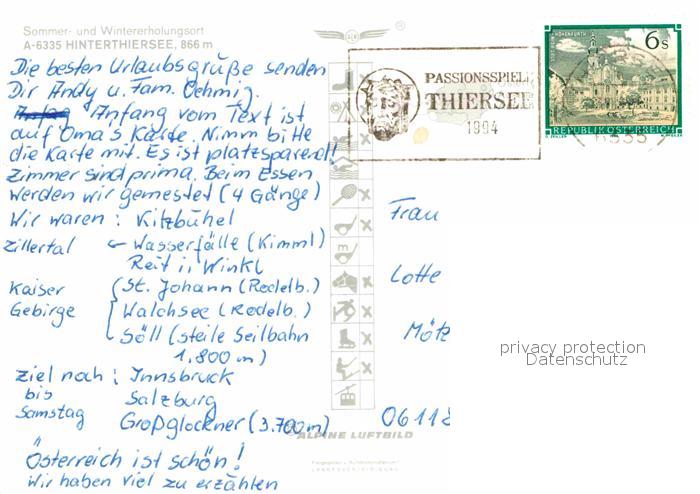 Sommer- und Wintererholungsort
A-6335 HINTERTHIERSEE, 866 m
Die besten Urlaubsgrüße senden
Dir Andy u. Fam. Oehmig.
Anfang vom Text ist
auf Oma's Karte. Nimm bitte
die Karte mit. Es ist platzsparend!
Zimmer sind prima. Beim Essen
werden wir gemestet (4 Gänge)
Wir waren: Kitzbühel
Zillertal ← Wasserfälle (Kimml)
Reit ii Winkl
Kaiser Gebirge { St. Johann (Rodelb.)
Walchsee (Rodelb.)
Söll (steile Seilbahn
1.800 m)
Ziel noch: Innsbruck
bis Salzburg
Samstag Großglockner (3.700m)
Österreich ist schön!
Wir haben viel zu erzählen
PASSIONSSPIELE
THIERSEE
1994
6s
REPUBLIK ÖSTERREICH
6335
Frau
Lotte
Mötz
0611
privacy protection
Datenschutz
ALPINE LUFTBILD